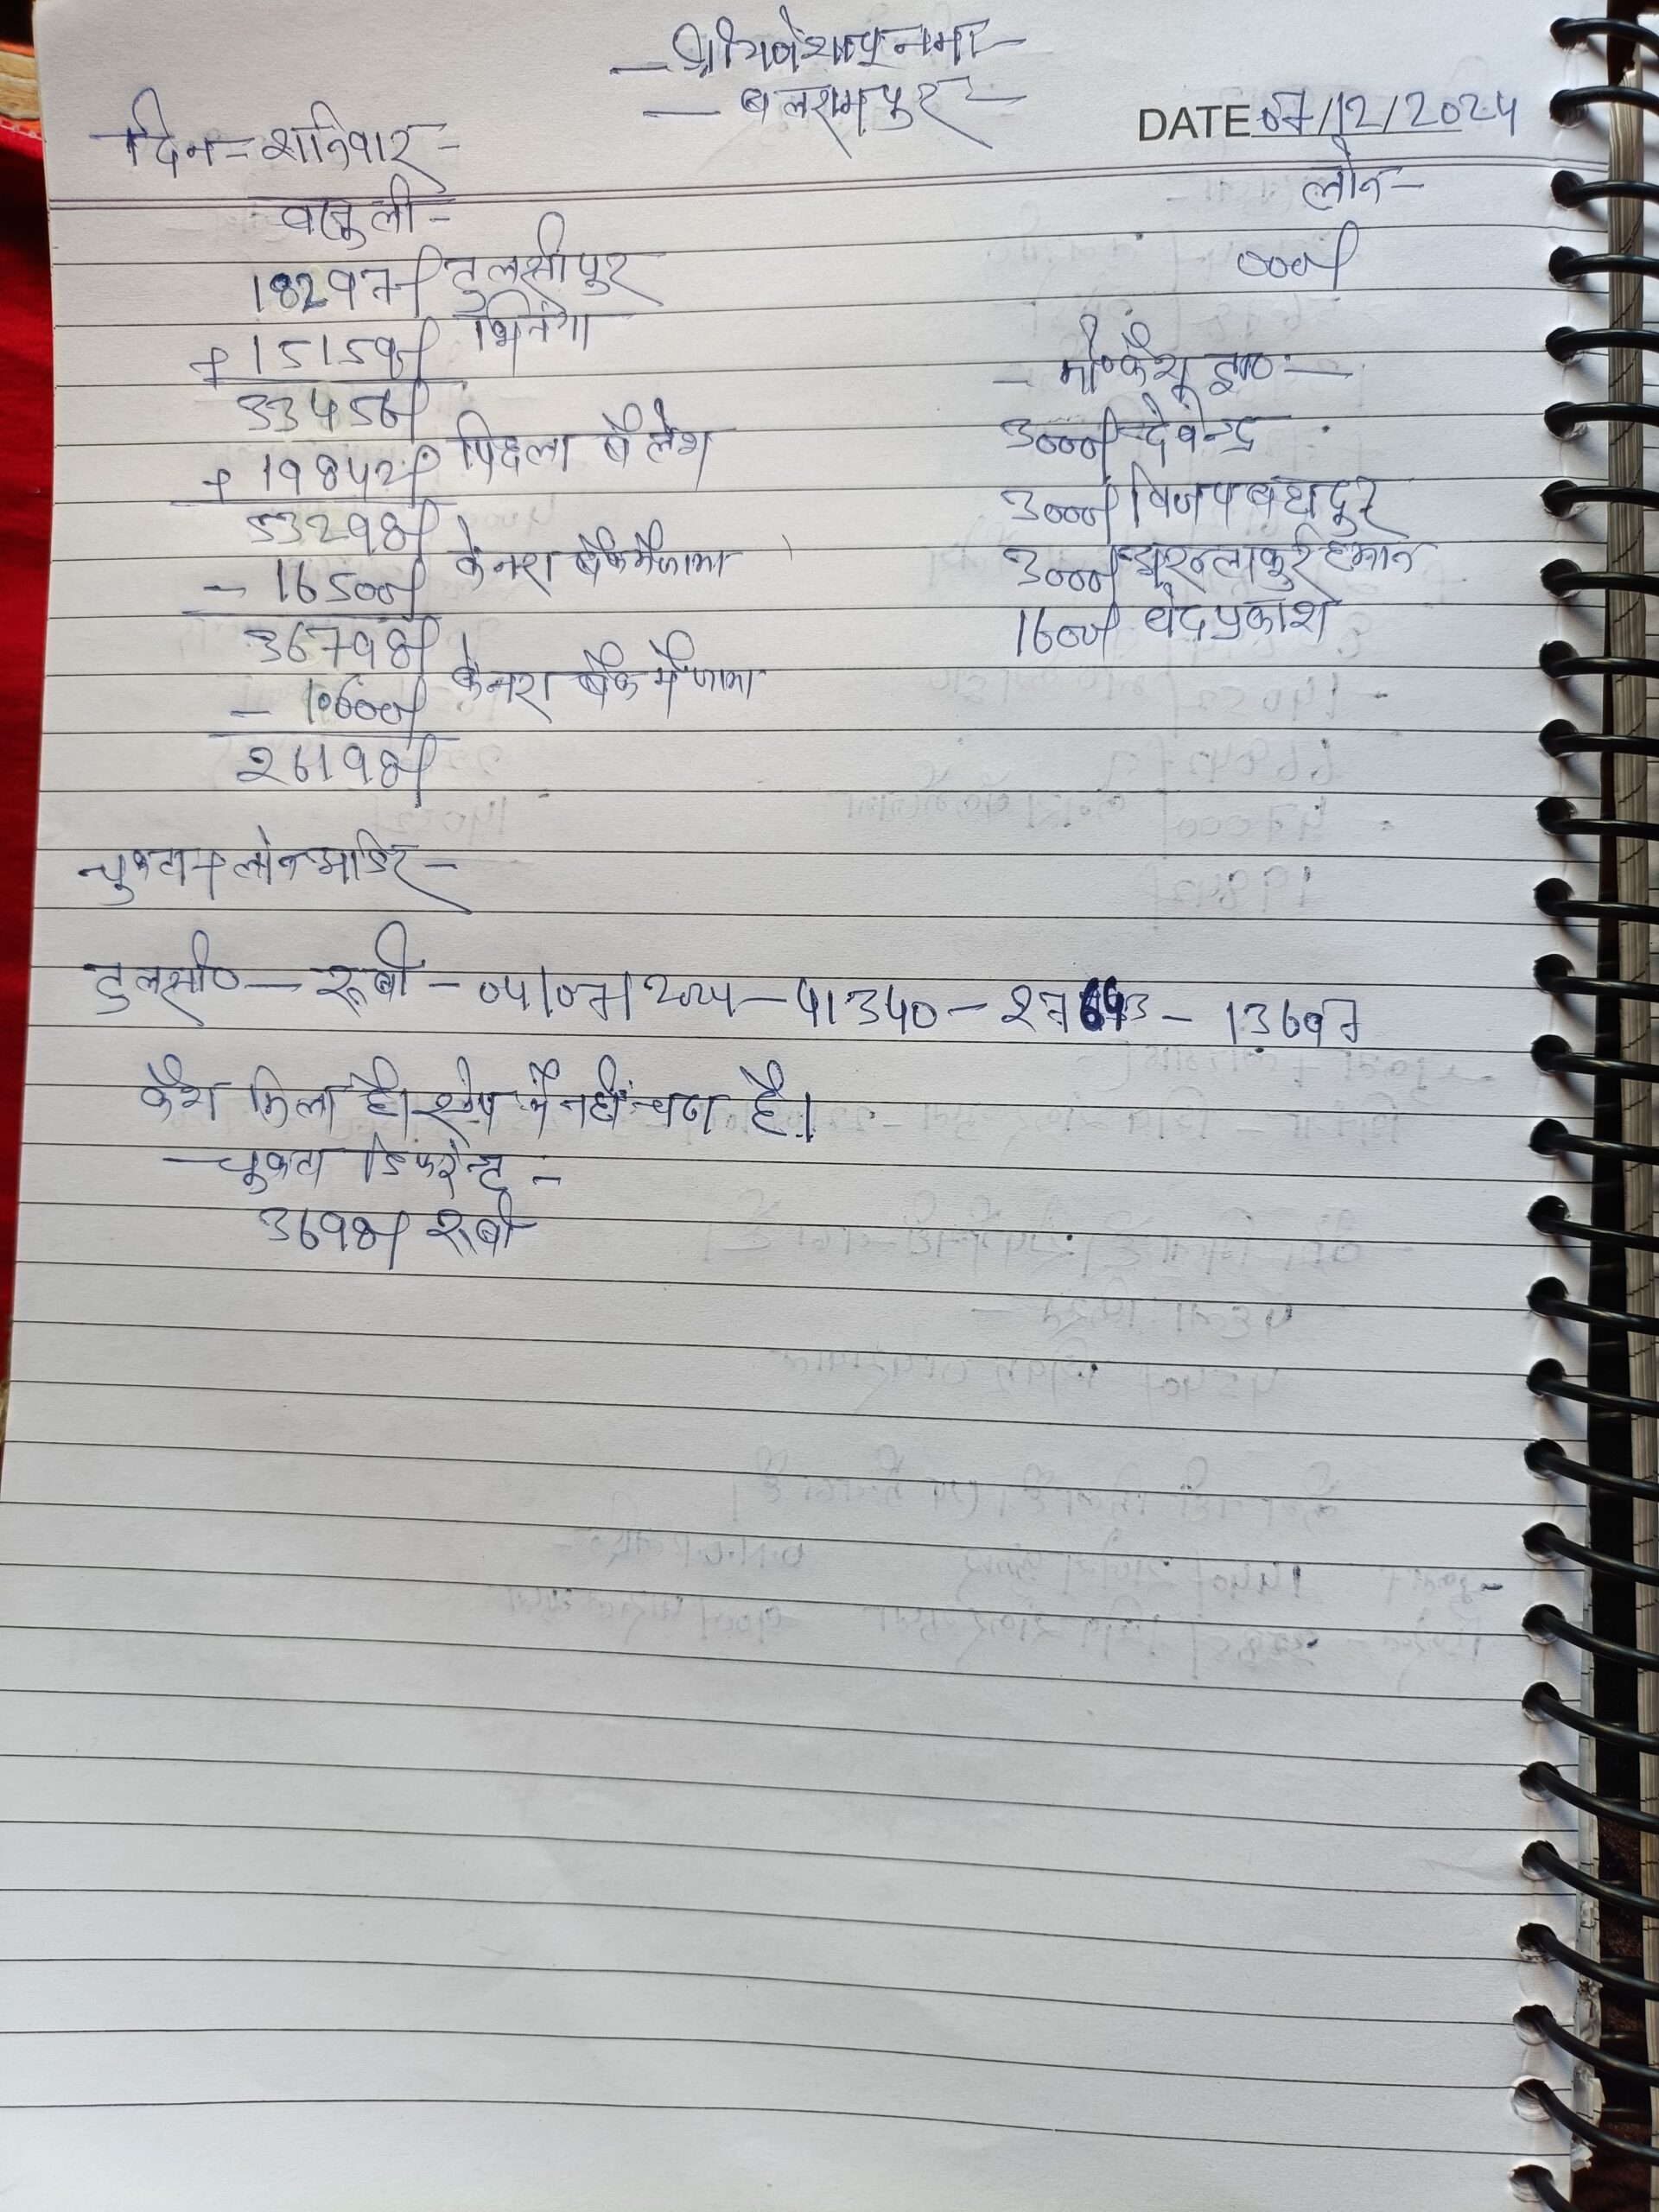 श्री गणेशाय नमः
बलरामपुर
DATE 07/12/2024
दिन - शनिवार -
वसूली -
लोन -
18297/ तुलसीपुर
000/
+ 15159/ भिनगा
33456/
+ 19842/ पिछला बैलेंश
53298/
- 16500/ केनरा बैंक में जमा
36798/
- 10600/ केनरा बैंक में जमा
26198/
3000/ देवेन्द्र
3000/ विजय बहादुर
3000/
1600/ वेदप्रकाश
चुकता + लोन आर्डर -
तुलसी० - रूबी - 04/07/2024 - 41340 - 27643 - 13697
कैश मिला है। ऐप में नहीं चढा है।
- चुकता डिफरेन्ट -
3698/ रूबी